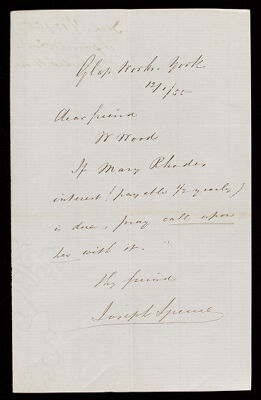 Glass Works York
12/1/55
Dear friend
W Wood
If Mary Rhodes
interest (payable 1/2 yearly)
is due, pray call upon
her with it.
thy friend
Joseph Spence